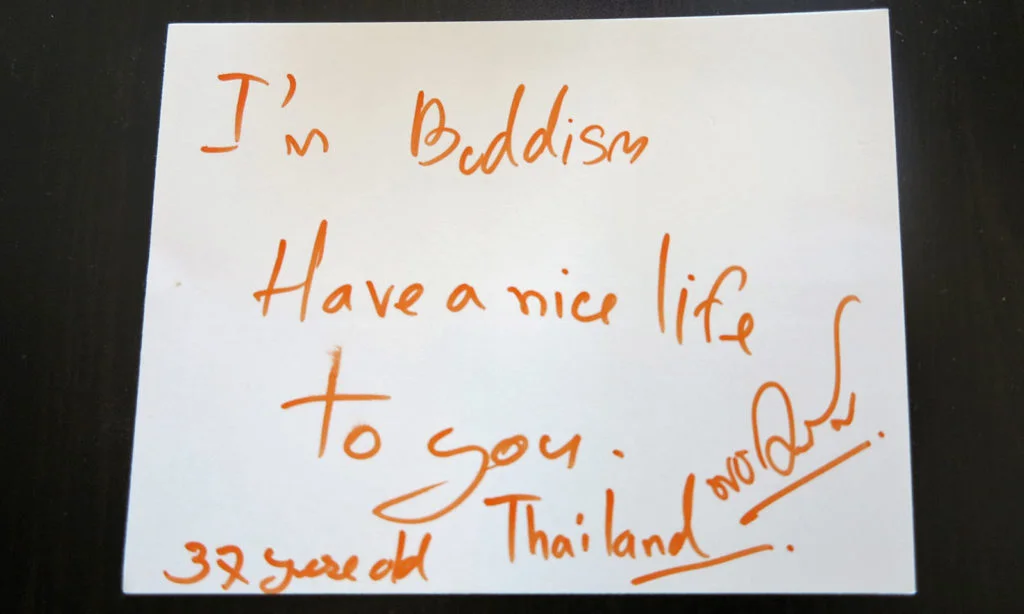 I'm Buddism
Have a nice life
to you.
Thailand.
37 yeare old